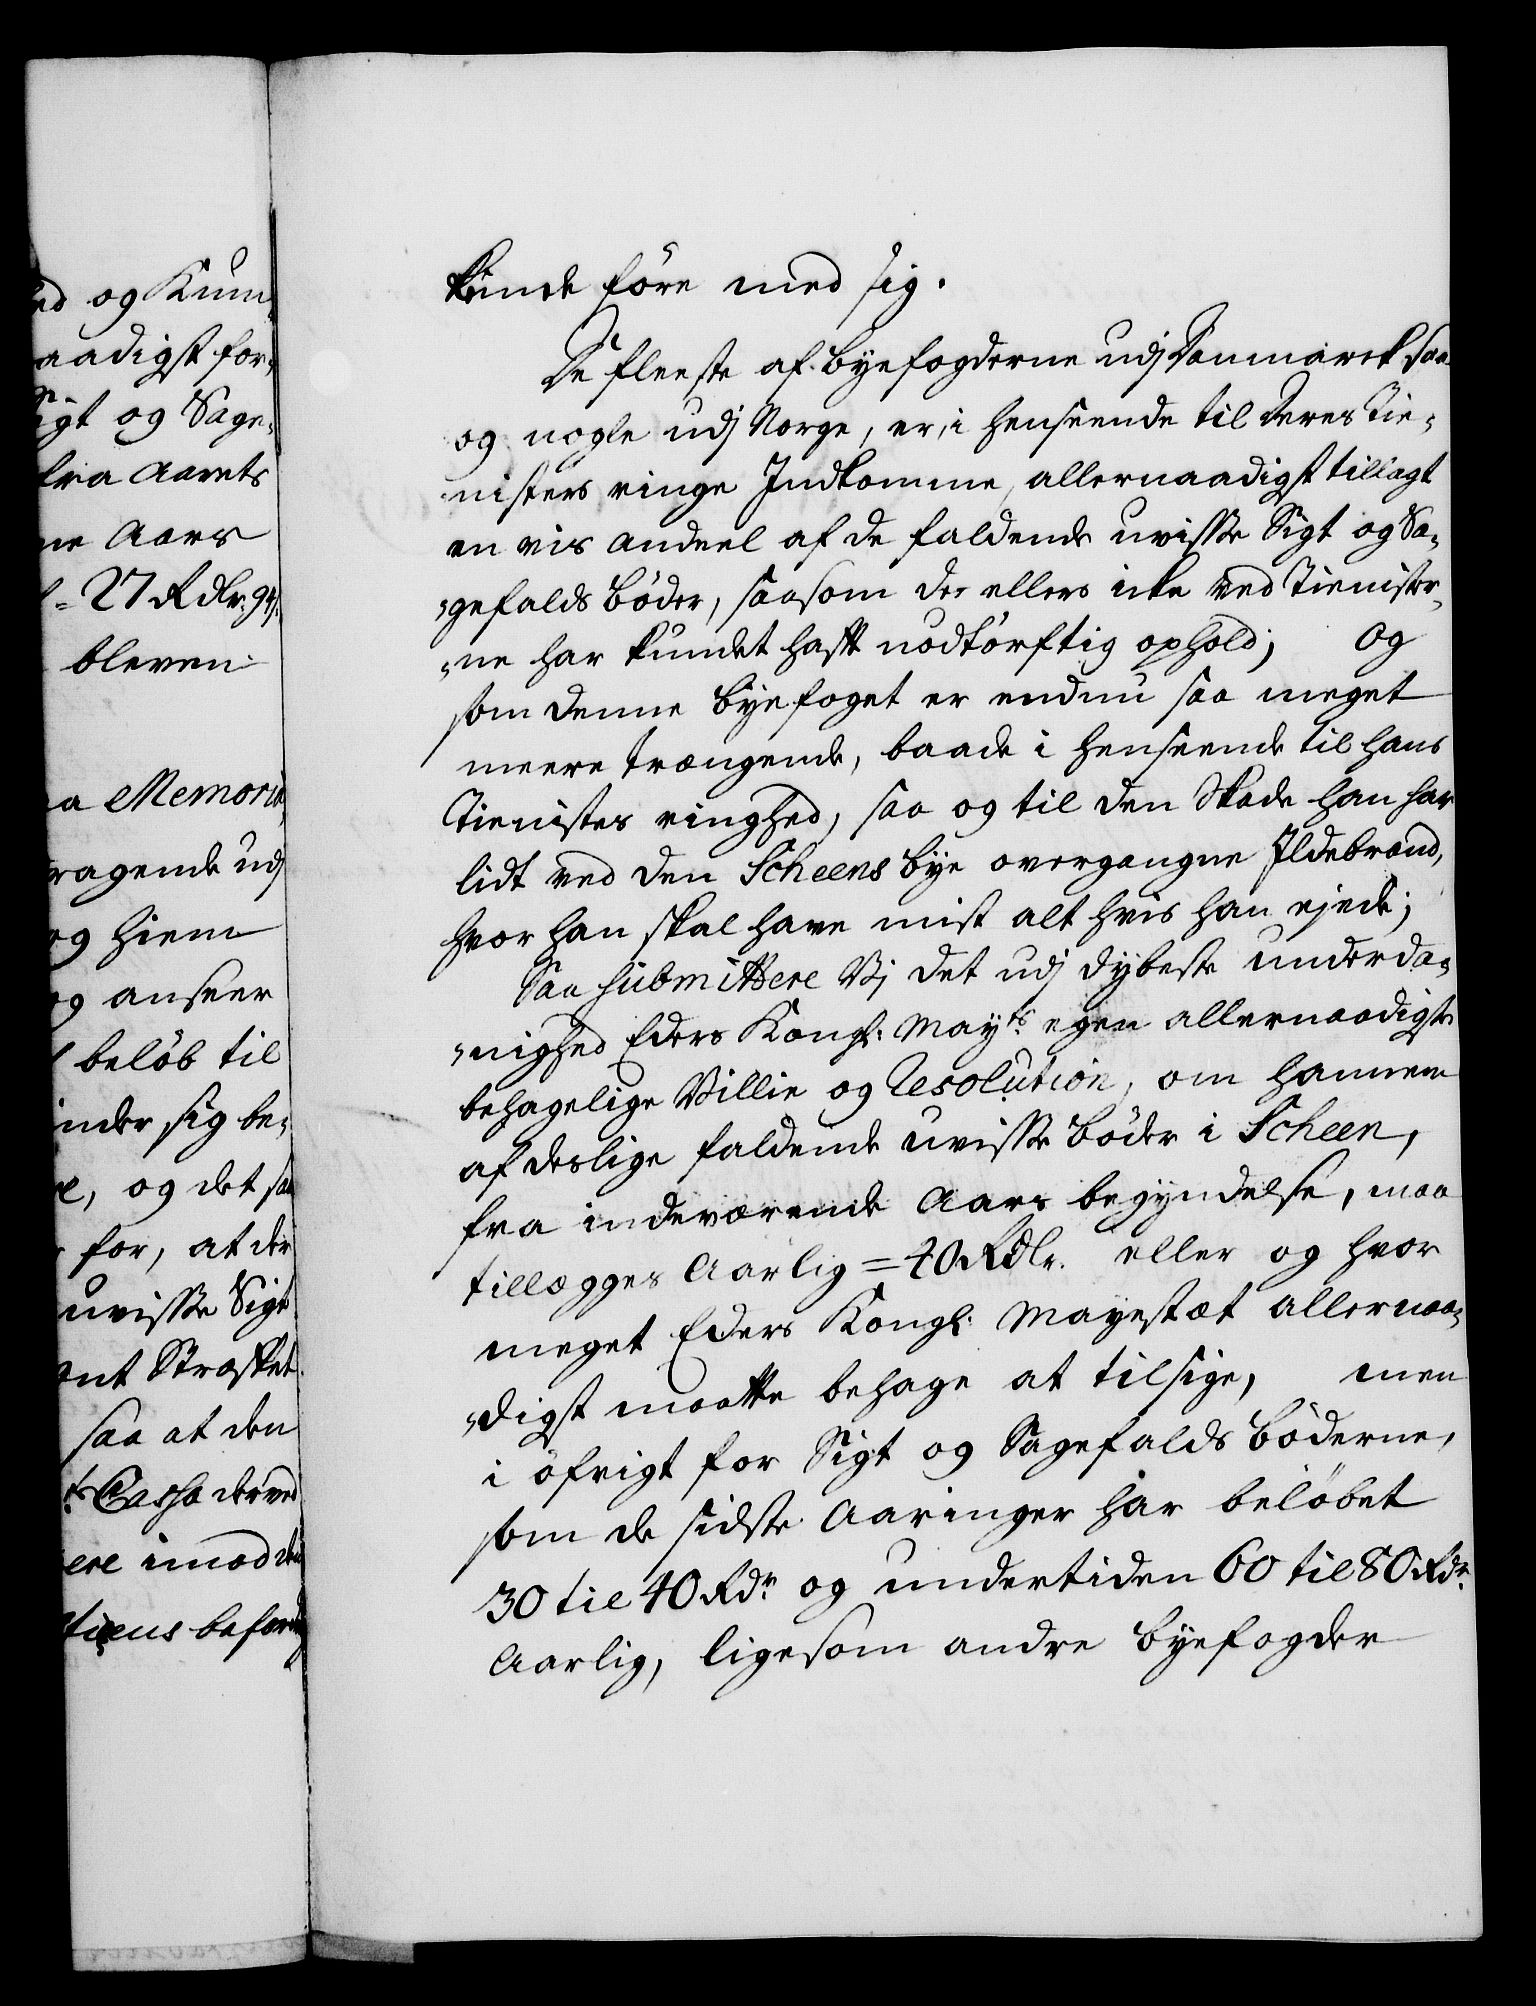 ed og Kum-
aadigst for-
Sigt og Sage-
fra Aarets
ne Aars
27 Rdlr. 94
bleven
Memoria
ragende udj
og hiem
og anseer
beløb til
inder sig be-
og det saa
for, at der
uvisse Sigt
saa at den
Cassa derved
ere imod den
kunde före med sig.
De fleeste af Byefogderne udj Danmarck saa
og nogle udj Norge, er, i henseende til deres Tie-
nisters ringe Indkomme, allernaadigst tillagt
en vis andeel af de faldende uvisse Sigt og Sa-
gefalds Böder, saasom de ellers icke ved Tienister-
ne har kundet haft nödtörftig ophold; Og
som denne Byefoget er endnu saa meget
meere trængende, baade i henseende til hans
Tienistes ringhed, saa og til den Skade han har
lidt ved den Scheens Bye overgangne Ildebrand,
hvor han skal have mist alt hvis han ejede;
Saa submittere Vj det udj dybeste underda-
nighed Eders Kongl: Mayts egen allernaadigste
behagelige Villie og Resolution, om hannem
af deslige faldende uvisse Böder i Scheen,
fra indeværende Aars begyndelse, maa
tillægges Aarlig = 40 Rdlr. eller og hvor
meget Eders Kongl: Mayestæt allernaa-
digst maatte behage at tilsige, men
i öfrigt for Sigt og Sagefalds Böderne,
som de sidste Aaringer har belöbet
30 til 40 Rdr og undertiden 60 til 80 Rdr
Aarlig, ligesom andre Byefogder